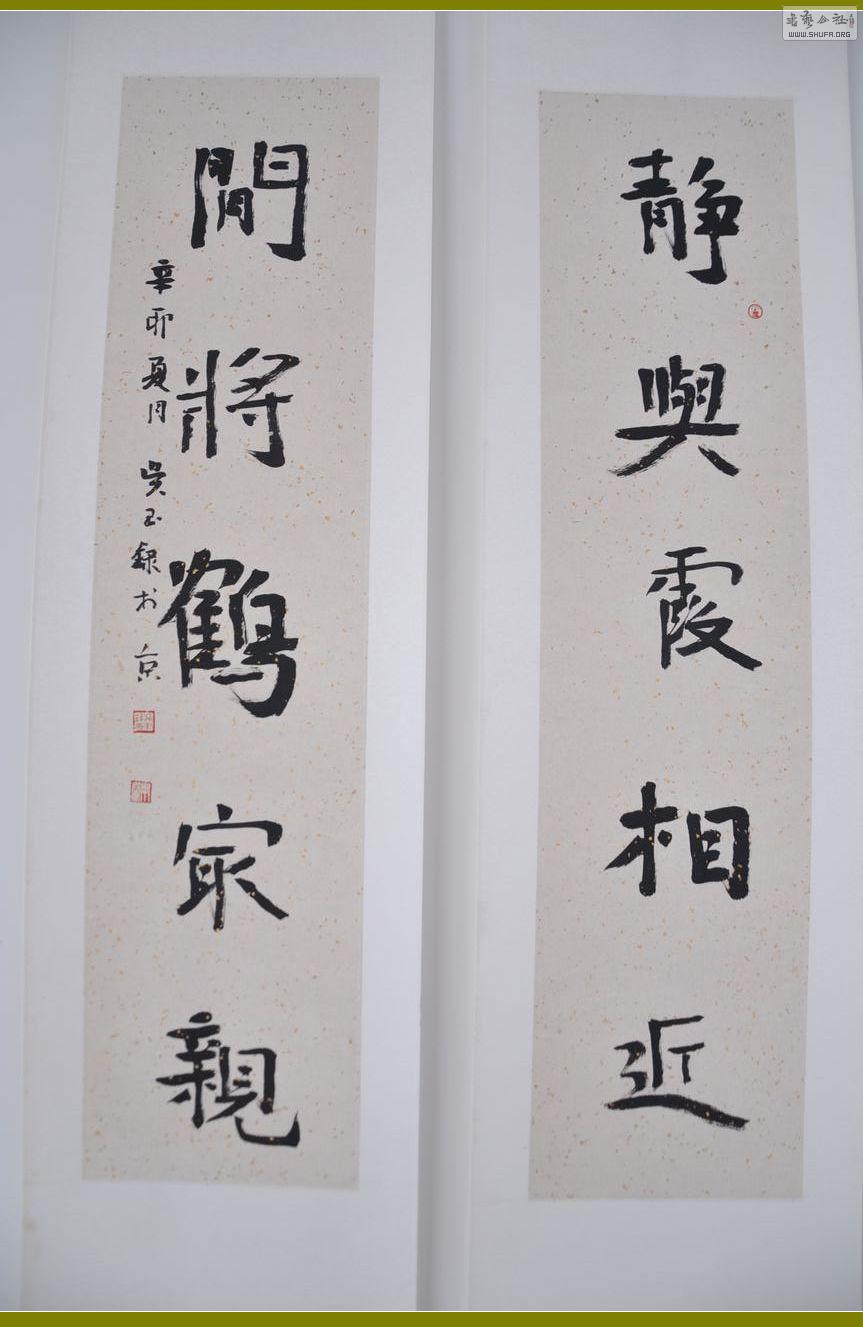 静與霞相近
閒將鶴㝡親
辛卯夏月吳玉録於京
書藝公社
WWW.SHUFA.ORG